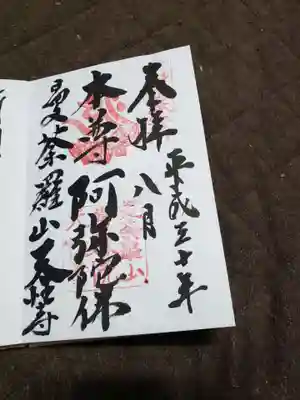 奉拝
平成三十年
八月
本尊 阿弥陀佛
曼荼羅山 天寧寺